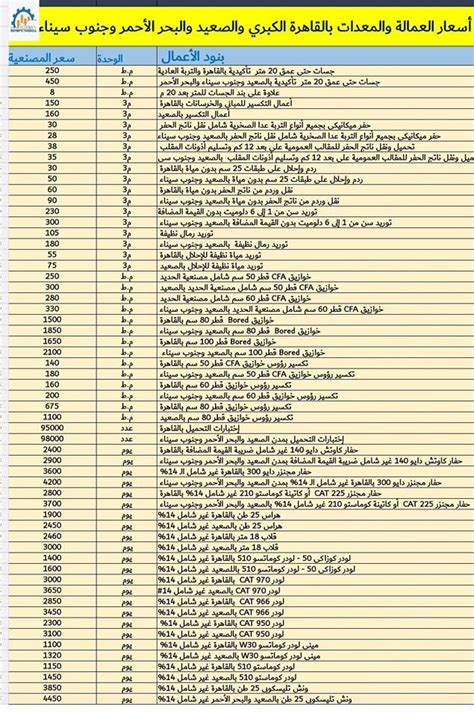 أسعار العمالة والمعدات بالقاهرة الكبري والصعيد والبحر الأحمر وجنوب سيناء
بنود الأعمال الوحدة سعر المصنعية
جسات حتى عمق 20 متر تأكيدية بالقاهرة والتربة العادية م.ط 250
جسات حتى عمق 20 متر تأكيدية بالصعيد وجنوب سيناء والبحر الأحمر م.ط 450
علاوة على بند الجسات للمتر بعد 20 م م.ط 8
أعمال التكسير للمباني والخرسانات بالقاهرة م3 150
أعمال التكسير بالصعيد م3 160
حفر ميكانيكى بجميع أنواع التربة عدا الصخرية شامل نقل ناتج الحفر م3 30
حفر ميكانيكى بجميع أنواع التربة عدا الصخرية شامل نقل ناتج الحفر بالصعيد وجنوب سيناء م3
تحميل ونقل ناتج الحفر للمقالب العمومية علي بعد 12 كم وتسليم أذونات المقلب م3 38
تحميل ونقل ناتج الحفر للمقالب العمومية علي بعد 12 كم وتسليم أذونات المقلب بالصعيد وجنوب سي م3 35
ردم وإحلال علي طبقات 25 سم بدون مياة بالقاهرة م3 30
ردم وإحلال علي طبقات 25 سم بدون مياة بالصعيد وجنوب سيناء م3 50
نقل وردم من ناتج الحفر بدون مياة بالقاهرة م3 60
نقل وردم من ناتج الحفر بدون مياة بالصعيد وجنوب سيناء م3 90
توريد سن من 1 إلي 6 دلوميت بدون القيمة المضافة م3 230
توريد سن من 1 إلي 6 دلوميت بدون القيمة المضافة بالصعيد وجنوب سيناء م3 300
توريد رمال نظيفة م3 105
توريد رمال نظيفة بالصعيد وجنوب سيناء م3 180
توريد مياة نظيفة للإحلال بالقاهرة م3 55
توريد مياة نظيفة للإحلال بالصعيد م3 75
خوازيق CFA قطر 50 سم شامل مصنعية الحديد بالقاهرة م.ط 250
خوازيق CFA قطر 50 سم شامل مصنعية الحديد بالصعيد وجنوب سيناء م.ط 300
خوازيق CFA قطر 60 سم شامل مصنعية الحديد م.ط 280
خوازيق CFA قطر 60 سم شامل مصنعية الحديد بالصعيد وجنوب سيناء م.ط 330
خوازيق Bored قطر 80 سم بالقاهرة م.ط 1500
خوازيق Bored قطر 80 سم بالصعيد وجنوب سيناء م.ط 1850
خوازيق Bored قطر 100 سم بالقاهرة م.ط 1650
خوازيق Bored قطر 100 سم بالصعيد وجنوب سيناء م.ط 2100
تكسير رؤوس خوازيق CFA قطر 50 سم بالقاهرة م.ط 140
تكسير رؤوس خوازيق CFA قطر 50 سم بالصعيد وجنوب سيناء م.ط 180
تكسير رؤوس خوازيق CFA قطر 60 سم بالقاهرة م.ط 160
تكسير رؤوس خوازيق CFA قطر 60 سم بالصعيد وجنوب سيناء م.ط 200
تكسير رؤوس خوازيق قطر 80 سم بالقاهرة م.ط 675
تكسير رؤوس خوازيق قطر 80 سم بالصعيد وجنوب سيناء م.ط 1100
إختبارات التحميل بالقاهرة عدد 95000
إختبارات التحميل بمدن الصعيد والبحر الأحمر وجنوب سيناء عدد 98000
حفار كاوتش دايو 140 غير شامل ضريبة القيمة المضافة بالقاهرة يوم 2400
حفار كاوتش دايو 140 غير شامل ضريبة القيمة المضافة بمدن الصعيد والبحر الأحمر وجنوب سيناء يوم 2900
حفار مجنزر دايو 300 بالقاهرة غير شامل الـ 14% يوم 3200
حفار مجنزر دايو 300 بالقاهرة غير شامل الـ 14% بمدن الصعيد والبحر الأحمر وجنوب سيناء يوم 4200
حفار مجنزر CAT 225 أو كاتينة كوماستو 210 غير شامل 14% بالقاهرة يوم 2900
حفار مجنزر CAT 225 أو كاتينة كوماستو 210 غير شامل 14% بالصعيد والبحر الأحمر وجنوب سيناء يوم 3700
هراس 25 طن بالقاهرة غير شامل 14% يوم 1900
هراس 25 طن بالصعيد غير شامل 14% يوم 2450
قلاب 18 متر بالقاهرة غير شامل 14% يوم
قلاب 18 متر بالصعيد غير شامل 14% يوم
لودر كوزاكى 50 - لودر كوماتسو 510 بالقاهرة غير شامل 14% يوم 1400
لودر كوزاكى 50 - لودر كوماتسو 510 بالصعيد غير شامل 14% يوم 1600
لودر CAT 970 بالقاهرة غير شامل 14% يوم 3000
لودر CAT 970 بالصعيد غير شامل 14# يوم 3650
لودر CAT 966 بالقاهرة غير شامل 14% يوم 2850
لودر CAT 966 بالصعيد غير شامل 14% يوم 3450
لودر CAT 950 بالقاهرة غير شامل 14% يوم 2300
لودر CAT 950 بالصعيد غير شامل 14% يوم 3100
مينى لودر كوماتسو W30 بالقاهرة غير شامل 14% يوم 1100
مينى لودر كوماتسو W30 بالصعيد غير شامل 14% يوم 1320
لودر كوماتسو 510 بالقاهرة غير شامل 14% يوم 1150
لودر كوماتسو 510 بالصعيد غير شامل 14% يوم 1450
ونش تليسكوبى 25 طن بالقاهرة غير شامل 14% يوم 3850
ونش تليسكوبى 25 طن بالصعيد غير شامل 14% يوم 4450